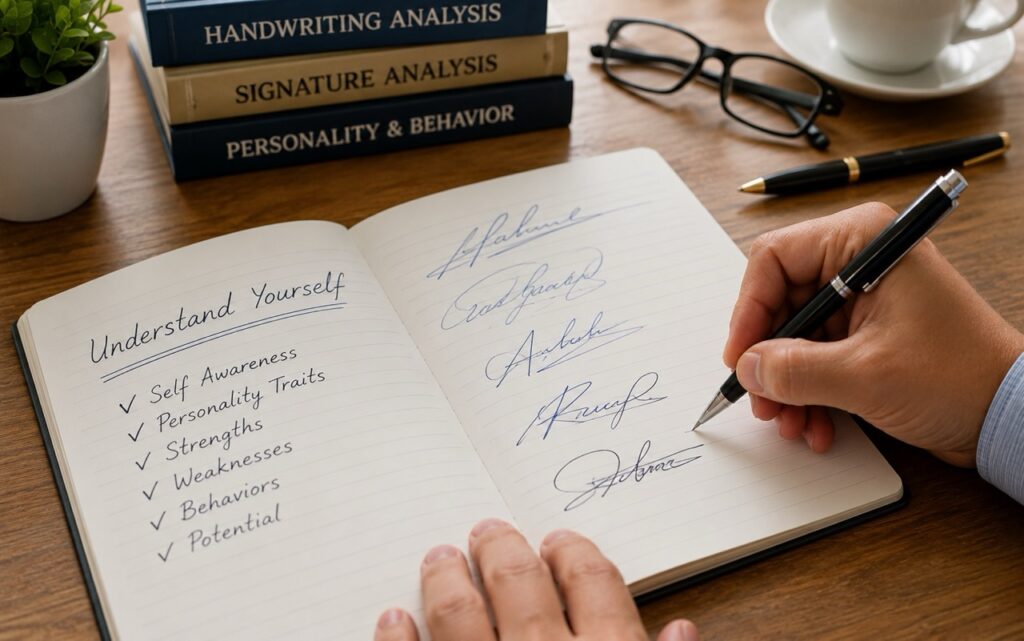 HANDWRITING ANALYSIS
SIGNATURE ANALYSIS
PERSONALITY & BEHAVIOR
Understand Yourself
✓ Self Awareness
✓ Personality Traits
✓ Strengths
✓ Weaknesses
✓ Behaviors
✓ Potential